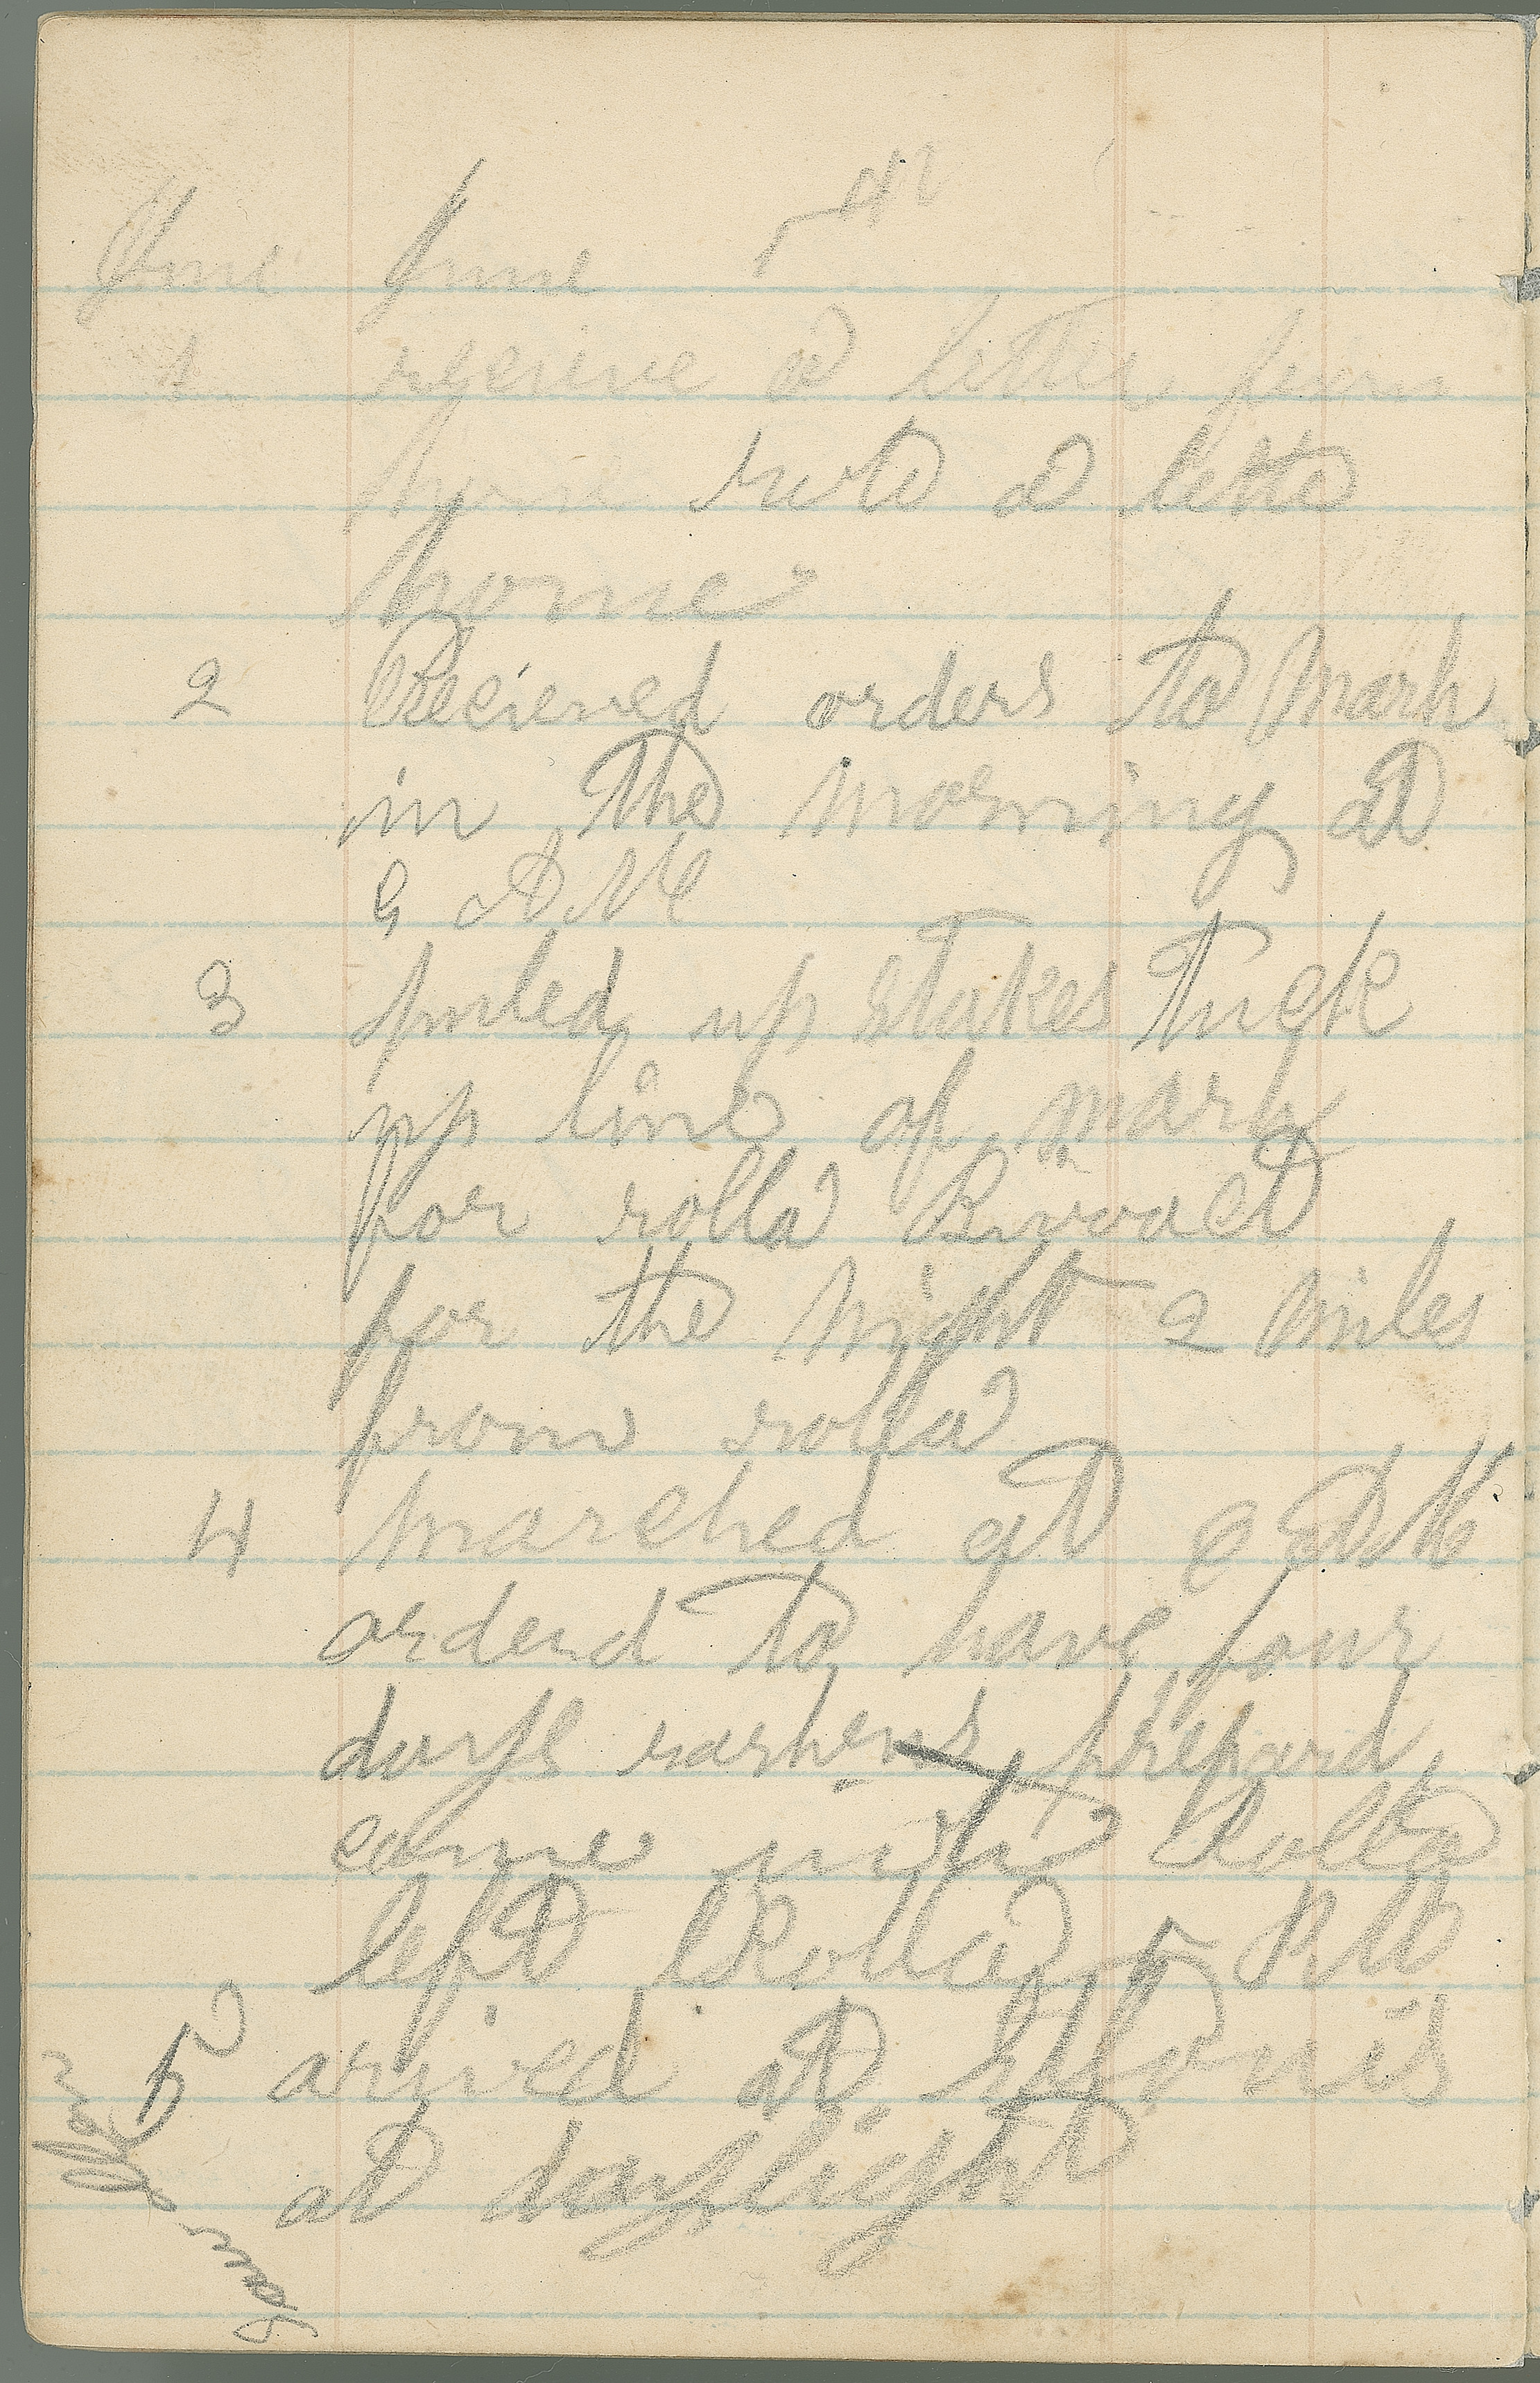 June June 5th
1 receive a letter from
home rwte a lette
home
2 Recieved orders to march
in the morning at
9 AM
3 puled up stakes tuck
up line of march
for rolla Bivoact
for the Night 2 Miles
from rolla
4 marched at 8 AM
orderd to have four
days rashens prepard
came into Rolla
left Rolla 5 PM
5 arived at st lonis
at daylight